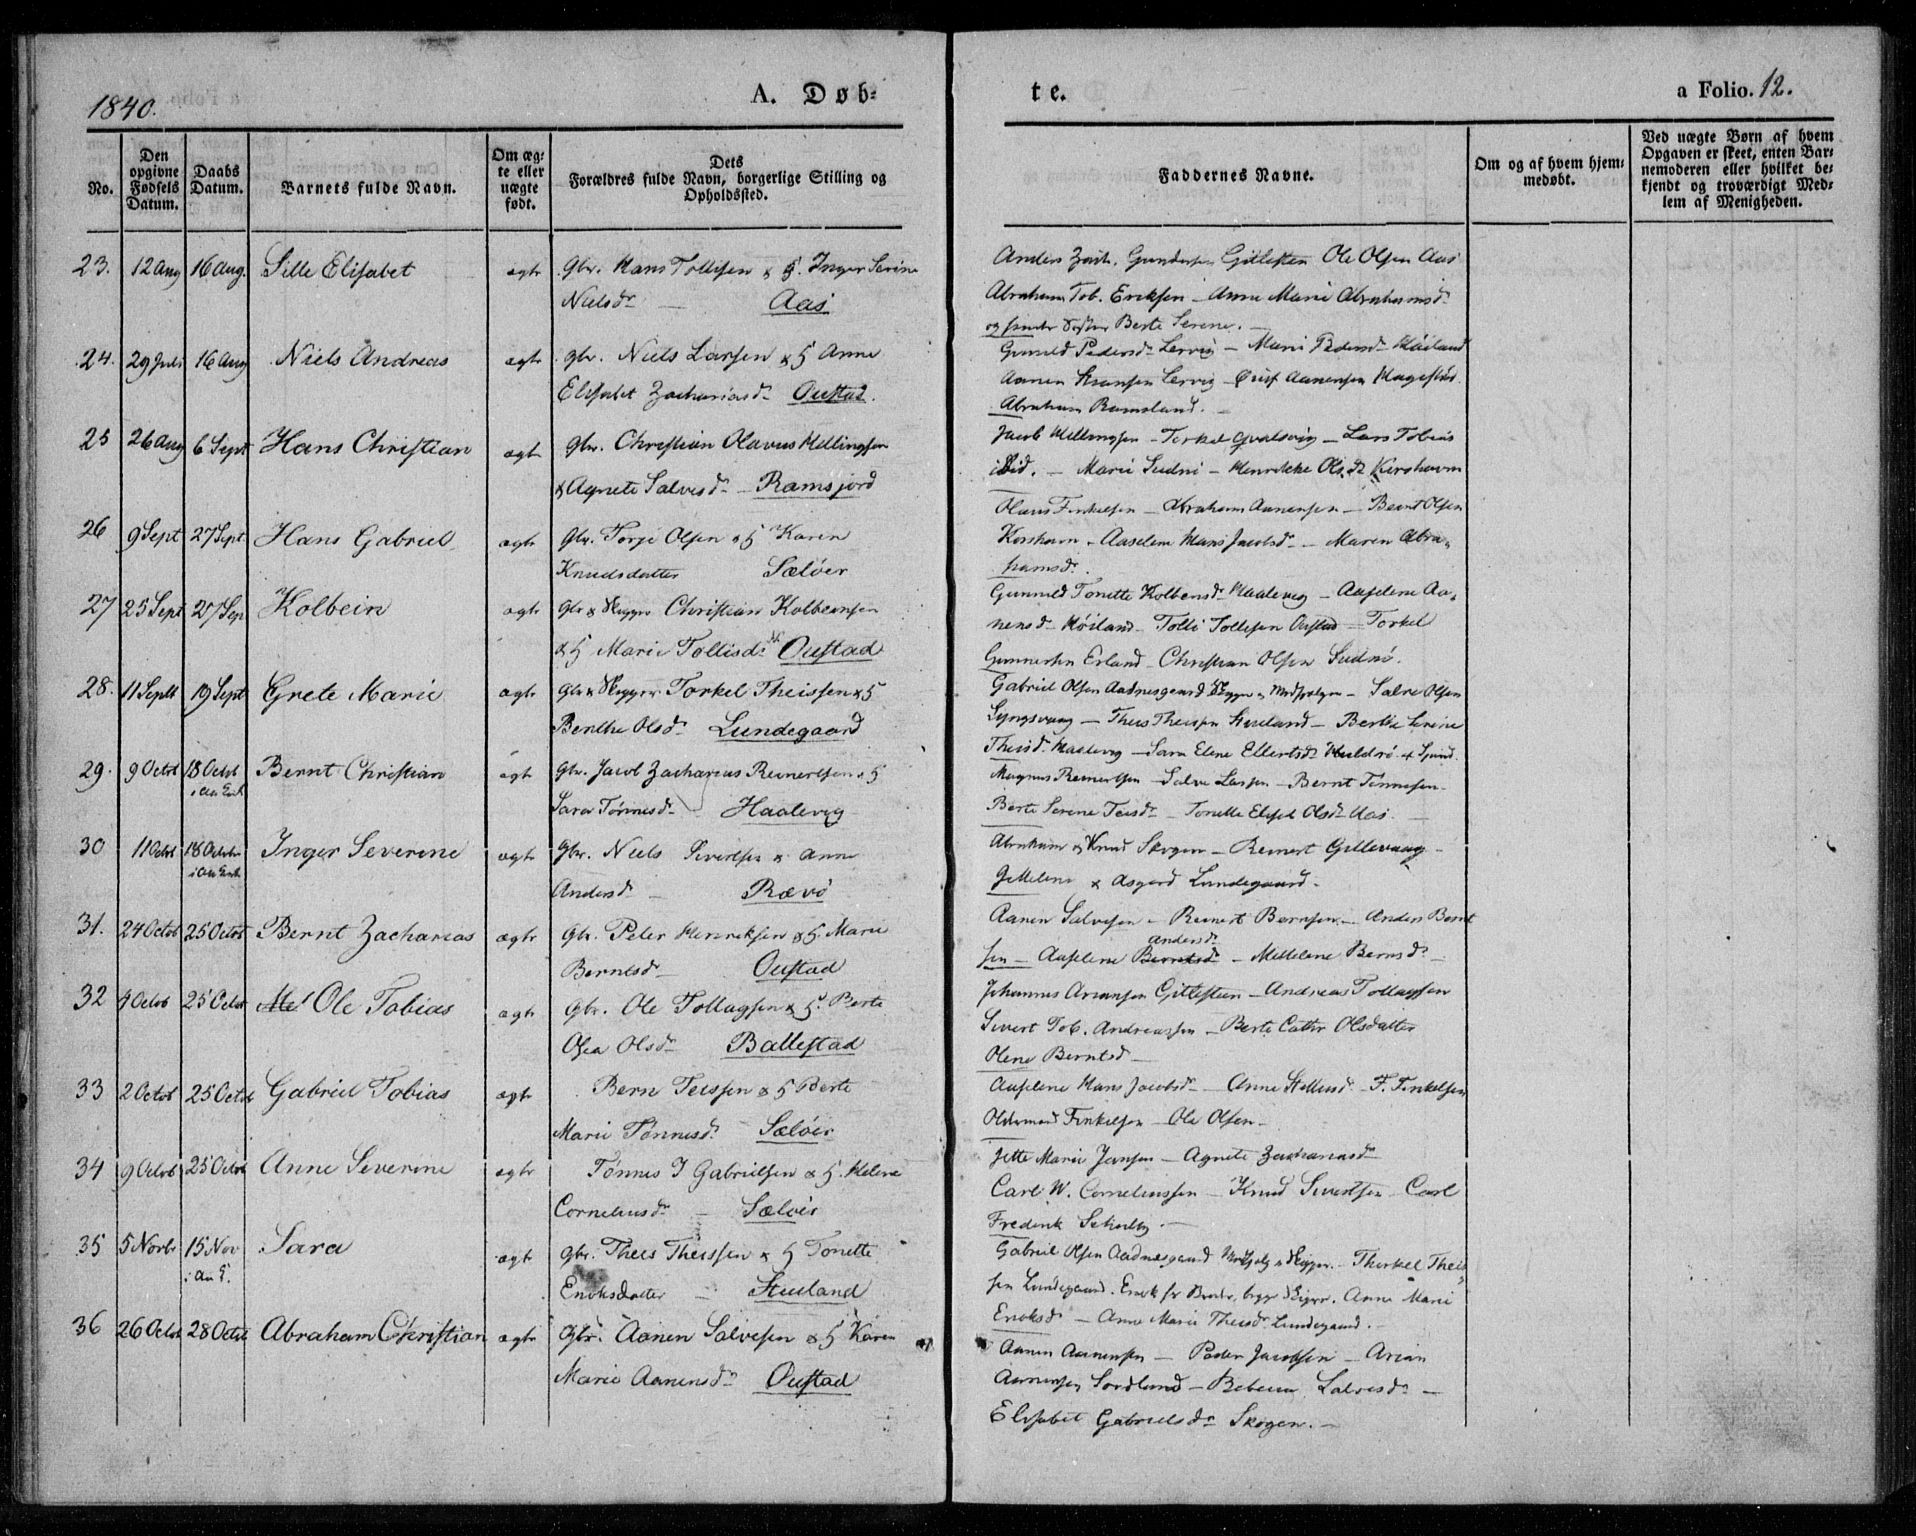 1840.
A. Døb-
te.
a Folio. 12.
No.
Den opgivne Fødsels Datum.
Daabs Datum.
Barnets fulde Navn.
Om ægte eller uægte født.
Dets Forældres fulde Navn, borgerlige Stilling og Opholdssted.
Faddernes Navne.
Om og af hvem hjemmedøbt.
Ved uægte Børn af hvem Opgaven er skeet, enten Barnemoderen eller hvilket bekjendt og troværdigt Medlem af Menigheden.
23. 12 Aug 16 Aug. Sille Elisabet ægte gbr. Hans Tollisen & h. Inger Serine
Nielsdr Aas
Anders Zach. Gundersen Gitlesten Ole Olsen Aas
Abraham Tob. Eriksen - Anne Marie Abrahamsd.
Berte Serene.
24. 29 Juli 16 Aug Niels Andreas ægte gbr. Niels Larsen & h Anne
Elisabet Zachariasd. Oustad.
Gunild Pedersd. Lervig - Marie Pedersd. Høiland
Aanen Hansen Lervig - Aanensen
Abraham Ramsland.
25 26 Aug 6 Sept Hans Christian ægte gbr. Christian Olavus Mellingsen
& Agnete Salvesd. - Ramsjord
Jacob Mellingsen - Torkel - Lars Tobias
ibid. - Marie Sudnø - Henrikke Olsdr Korshavn
26 9 Sept 27 Sept Hans Gabriel ægte gbr. Torje Olsen & h Karen
Knudsdatter Sæløer
Hans Finkelsen - Abraham Aanensen - Bernt Olsen
Korshavn - Aaselene Hans Jacobsd. - Maren Abra-
hamsd.
27 25 Sept 27 Sep Kolbein ægte gbr & Skipper Christian Kolbeinsen
& h Marie Tollisd. Oustad
Gunnild Tonette Kolbensd. Haalevig - Aaselene Aa-
nensd. Høiland - Tolli Tollisen Oustad - Torkel
Gunnersen Erland - Christian Olsen Sudnø.
28. 11 Sept 19 Sept Grete Marie ægte gbr & Skipper Torkel Theissen & h
Benthe Olsd. Lundegaard
Gabriel Olsen Aadnesgaard Skipper - Salve Olsen
Lyngsvaag - Theis Theissen Stuland - Berthe Serine
Theisd. Haalevig - Sara Elene Ellertsd.
29. 9 Octob 18 Octob Bernt Christian ægte gbr. Jacob Zacharias Reinertsen & h
Sara Tønnesd. Haalevig
Magnus Reinertsen - Salve Larsen - Bernt Tønnesen
Berte Serene Teisd. - Tonette Olsd. Aas
30 11 Octob 18 Octobr Inger Severine ægte gbr. Niels Sivertsen & Anne
Andersd. - Rævø
Abraham & Knud Skogen - Reinert Gillevaag
& Asgerd Lundegaard.
31. 24 Octob 25 Octob Bernt Zacharias ægte gbr. Peter Henriksen & h. Marie
Berntsd. Oustad
Aanen Salvesen - Reinert Bernsen - Anders Bernt
sen - Aaselene Berntsd. Andersd. - Mettelene Bernsd.
32 9 Octob 25 Octob Ole Tobias ægte gbr. Ole Tollagsen & h. Berte
Olsd. Ballestad
Johannes Ariansen Gitlesten - Andreas Tollagsen
Sivert Tob. Andreassen - Berte Cathr Olsdatter
Olene Berntsd.
33 2 Octob 25 Octob Gabriel Tobias ægte Bern Teissen & h Berte
Marie Tønnesd. Sæløer
Aaselene Hans Jacobsd. - Anne - F. Finkelsen
Finkelsen - Ole Olsen
34 9 Octob 25 Octob Anne Severine ægte Tønnes J Gabrielsen & h. Helene
Corneliusd. - Sæløer
Jette Marie Jensen - Agnete Zachariasd.
Carl W. Corneliussen - Knud Sivertsen - Carl
Frederik
35 5 Novbr 15 Nov Sara ægte gbr. Theis Theissen & h Tonette
Enoksdatter - Stuland
Gabriel Olsen Aadnesgaard & Skipper. - Thorkel Theis
sen Lundegaard. Anne Marie
Enoksd. - Anne Marie Theisd. Lundegaard.
36 26 Octob 28 Octob Abraham Christian ægte gbr. Aanen Salvesen & h Karen
Marie Aanensd. Oustad
Aanen Aanensen - Peder Jacobsen - Arian
Aanensen Sordland - Rebecca Salvesd. -
Elisabet Gabrielsdr Skogen. -